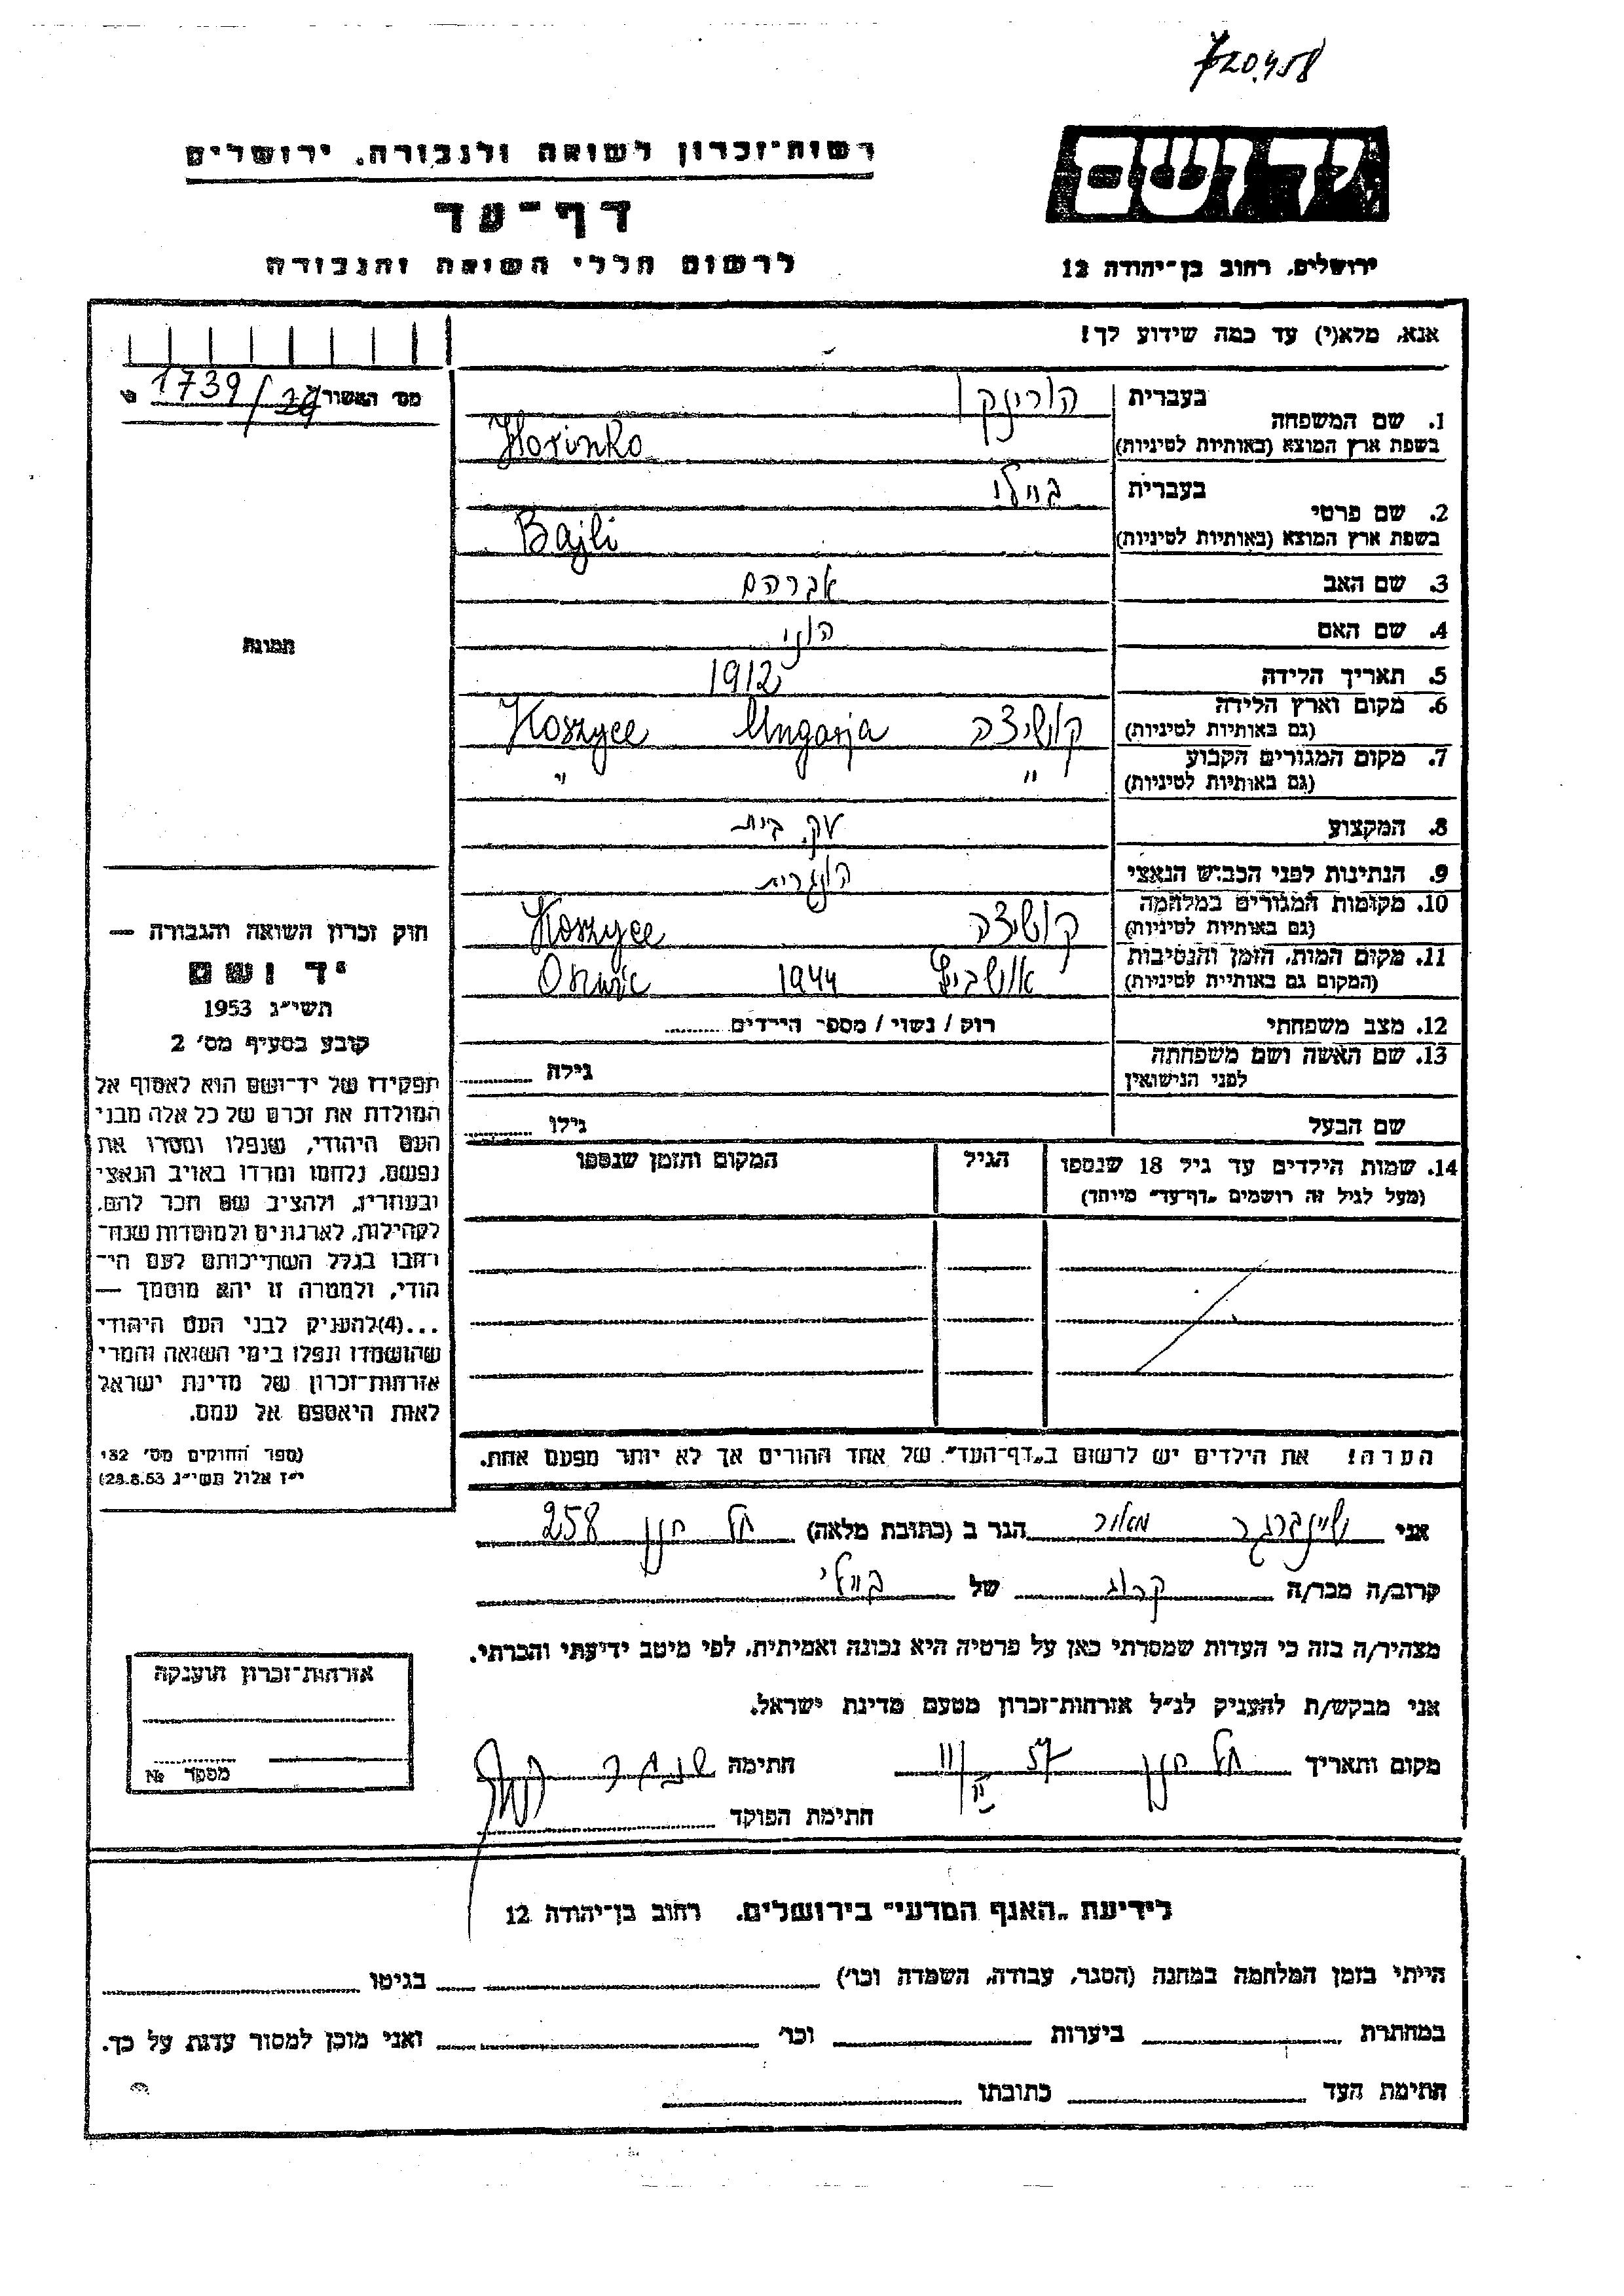 720.458
רשות־זכרון לשואה ולגבורה, ירושלים
יד ושם
דף־עד
לרשום חללי השואה והגבורה
ירושלים, רחוב בן־יהודה 12
אנא, מלא(י) עד כמה שידוע לך!
מס׳ האשור 1739/
1. שם המשפחה
בעברית
בשפת ארץ המוצא (באותיות לטיניות) Horinko
2. שם פרטי
בעברית ביילי
בשפת ארץ המוצא (באותיות לטיניות) Bajli
3. שם האב אברהם
4. שם האם הני
5. תאריך הלידה 1912
6. מקום וארץ הלידה
(גם באותיות לטיניות) קושיצה Ungarja Koszyce
7. מקום המגורים הקבוע
(גם באותיות לטיניות) " "
8. המקצוע עק. בית
9. הנתינות לפני הכבוש הנאצי הונגרית
10. מקומות המגורים במלחמה
(גם באותיות לטיניות) קושיצה Koszyce
11. מקום המות, הזמן והנסיבות
(המקום גם באותיות לטיניות) אושביץ 1944
12. מצב משפחתי רווק / נשוי / מספר הילדים
13. שם האשה ושם משפחתה
לפני הנישואין גילה
שם הבעל גילו
14. שמות הילדים עד גיל 18 שנספו הגיל המקום והזמן שנספו
(מעל לגיל זה רושמים „דף־עד״ מיוחד)
הערה! את הילדים יש לרשום ב„דף־העד״ של אחד ההורים אך לא יותר מפעם אחת.
תמונה
חוק זכרון השואה והגבורה —
יד ושם
תשי״ג 1953
קובע בסעיף מס׳ 2
תפקידו של יד־ושם הוא לאסוף אל
המולדת את זכרם של כל אלה מבני
העם היהודי, שנפלו ומסרו את
נפשם, נלחמו ומרדו באויב הנאצי
ובעוזריו, ולהציב שם וזכר להם,
לקהילות, לארגונים ולמוסדות שנח־
רבו בגלל השתייכותם לעם הי־
הודי, ולמטרה זו יהא מוסמך —
...(4)להעניק לבני העם היהודי
שהושמדו ונפלו בימי השואה והמרי
אזרחות־זכרון של מדינת ישראל
לאות היאספם אל עמם.
(ספר החוקים מס׳ 132
י״ז אלול תשי״ג 28.8.53)
אני שיינברגר מאור הגר ב (כתובת מלאה) תל חנן 258
קרוב/ה מכר/ה קרוב של ביילי
מצהיר/ה בזה כי העדות שמסרתי כאן על פרטיה היא נכונה ואמיתית, לפי מיטב ידיעתי והכרתי.
אני מבקש/ת להעניק לנ״ל אזרחות־זכרון מטעם מדינת ישראל.
מקום ותאריך תל חנן 57 חתימה
חתימת הפוקד
אזרחות־זכרון הוענקה
מספר №
לידיעת „האגף המדעי״ בירושלים, רחוב בן־יהודה 12
הייתי בזמן המלחמה במחנה (הסגר, עבודה, השמדה וכו׳) בגיטו
במחתרת ביערות וכו׳ ואני מוכן למסור עדות על כך.
חתימת העד כתובתו